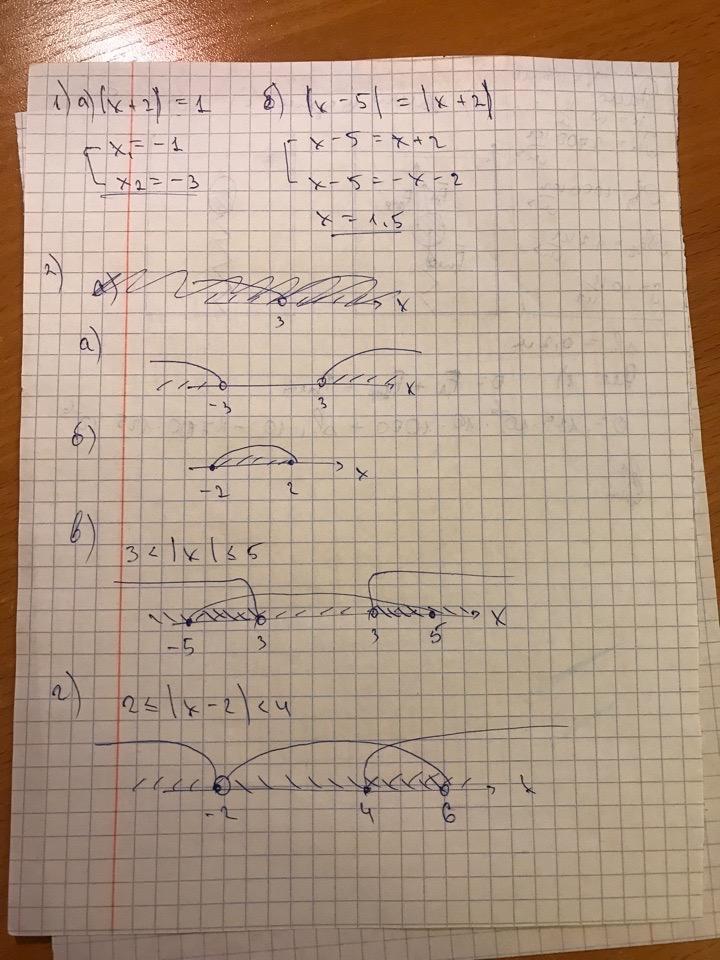 1) а) |x+2| = 1 б) |x-5| = |x+2|
x₁ = -1 x-5 = x+2
x₂ = -3 x-5 = -x-2
x = 1,5
2)
3 x
а)
-3 3 x
б)
-2 2 x
в)
3 < |x| ≤ 5
-5 3 3 5 x
г)
2 ≤ |x-2| < 4
-2 4 6 x